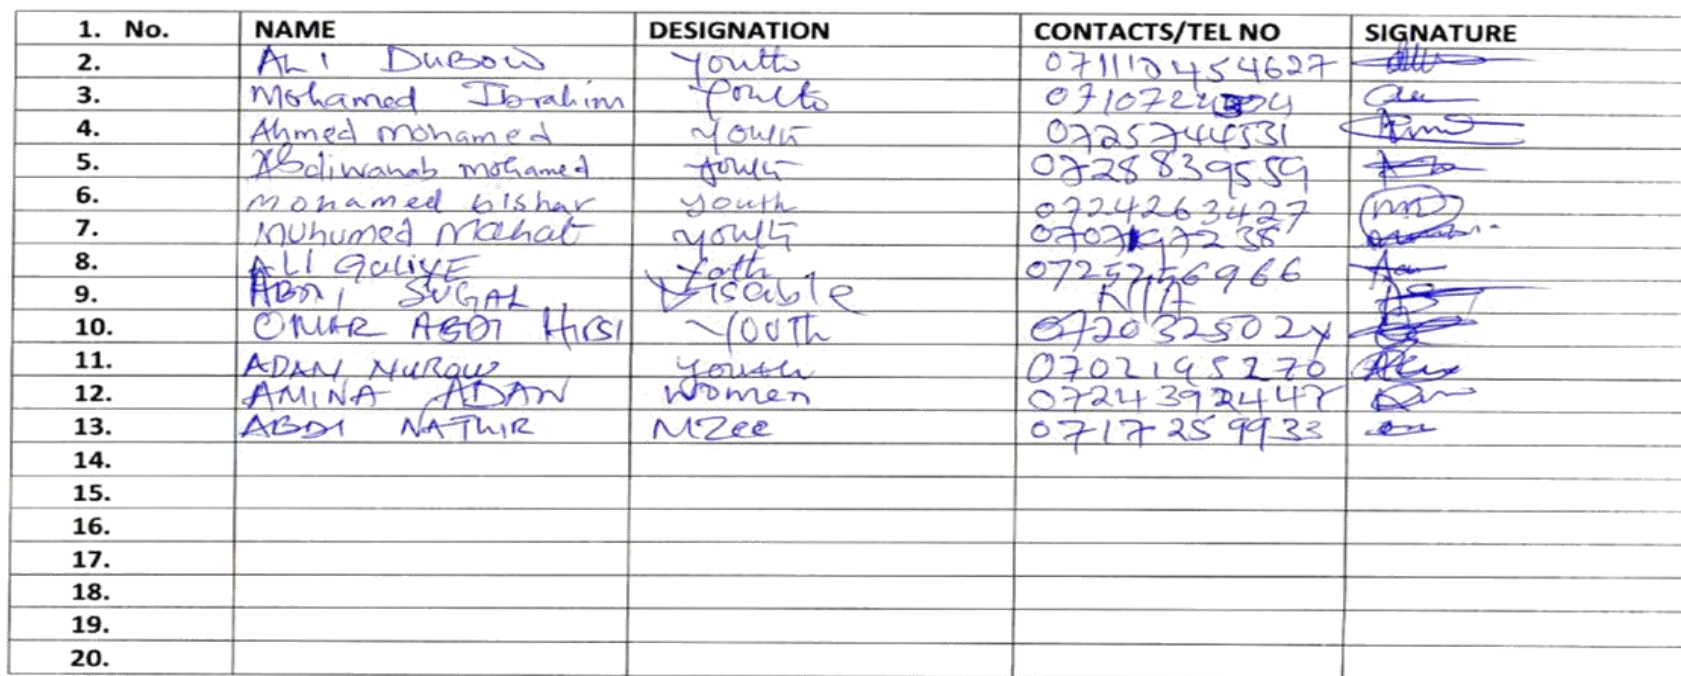 1. No. NAME DESIGNATION CONTACTS/TEL NO SIGNATURE
2. ALI DUBOW Youth
3. Mohamed Ibrahim Youth
4. Ahmed mohamed youth 0725744531
5. Abdiwahab mohamed youth 0728839559
6. mohamed bishar youth 0724263427
7. Muhumed Mahat youth
8. ALI Galiye Yoth
9. ABDI SUGAL Disable N/A
10. OMAR ABDI HIRSI YOUTH
11. ADAN NUROW youth 0702195270
12. AMINA ADAN Women
13. ABDI NATHIR MZee 0717259933
14.
15.
16.
17.
18.
19.
20.